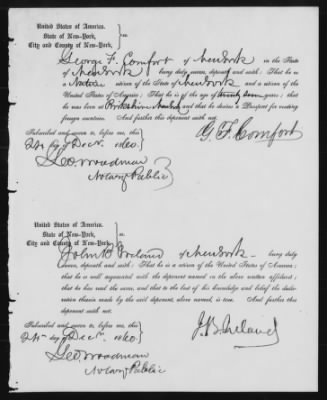 United States of America.
State of New-York,
City and County of New-York, } ss.
George F. Comfort of New York in the State
of New York being duly sworn, deposeth and with: That he is
a Native citizen of the State of New York and a citizen of the
United States of America; That he is of the age of twenty seven years; that he
was born at Berkshire New York and that he desires a Passport for visiting
foreign countries. And further this deponent saith not.
Subscribed and sworn to, before me, this }
day of Decr. 1860. }
G. F. Comfort
Geo. Woodman
Notary Public
United States of America.
State of New-York,
City and County of New-York, } ss.
John B. Ireland of New York being duly
sworn, deposeth and saith: That he is a citizen of the United States of America;
that he is well acquainted with the deponent named in the above written affidavit;
that he has read the same, and that to the best of his knowledge and belief the decla-
ration therein made by the said deponent, above named, is true. And further this
deponent saith not.
Subscribed and sworn to, before me, this }
day of Decr. 1860. }
J. B. Ireland
Geo. Woodman
Notary Public